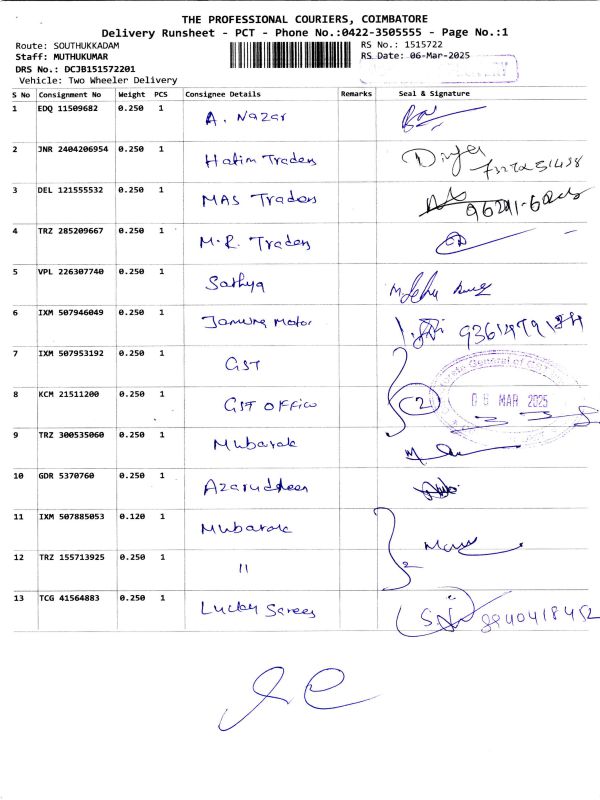 THE PROFESSIONAL COURIERS, COIMBATORE
Delivery Runsheet - PCT - Phone No.:0422-3505555 - Page No.:1
Route: SOUTHUKKADAM RS No.: 1515722
Staff: MUTHUKUMAR RS Date: 06-Mar-2025
DRS No.: DCJB151572201
Vehicle: Two Wheeler Delivery
S No Consignment No Weight PCS Consignee Details Remarks Seal & Signature
1 EDQ 11509682 0.250 1 A. Nazar
2 JNR 2404206954 0.250 1 Hatim Traders
3 DEL 121555532 0.250 1 MAS Traders
4 TRZ 285209667 0.250 1 M.R. Traders
5 VPL 226307740 0.250 1 Sathya
6 IXM 507946049 0.250 1 Jamuna Motor
7 IXM 507953192 0.250 1 GST
8 KCM 21511200 0.250 1 GST Office 2 MAR 2025
9 TRZ 300535060 0.250 1 Mubarak
10 GDR 5370760 0.250 1 Azaruddeen
11 IXM 507885053 0.120 1 Mubarak
12 TRZ 155713925 0.250 1 11 2
13 TCG 41564883 0.250 1 Lucky Sarees 8940418452